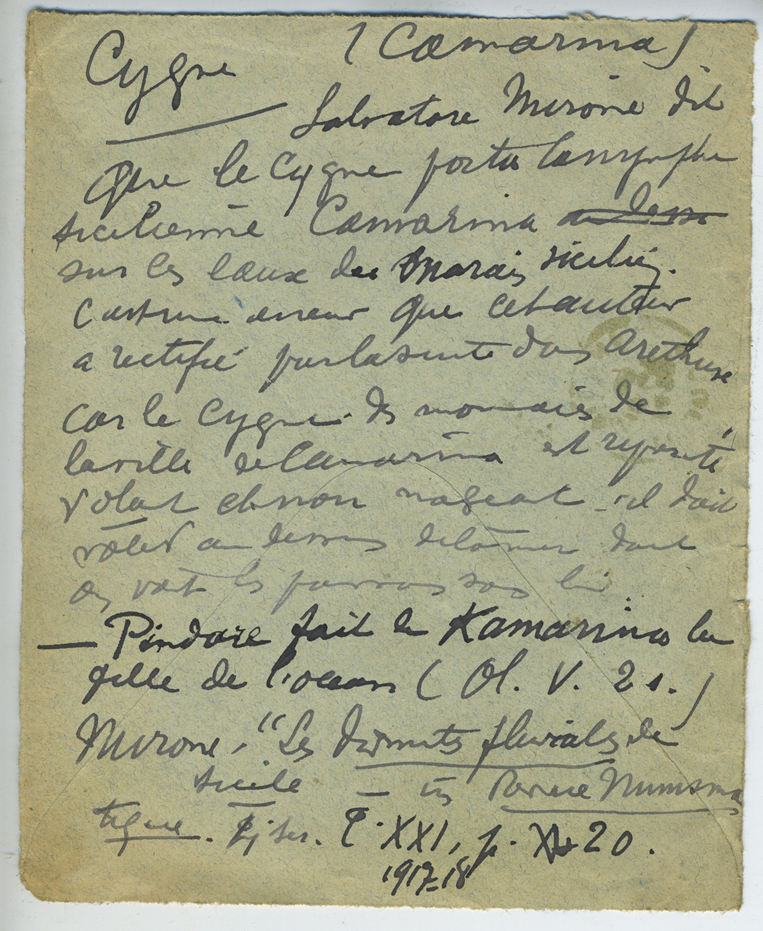 Cygne (Camarina)
Salvatore Mirone dit
que le Cygne porta la nymphe
sicilienne Camarina
sur les eaux des Marais sicilien.
C'est une erreur que cet auteur
a rectifié par la suite dans Arethuse
car le Cygne des monnaies de
la ville de Camarina est représenté
volant et non nageant - il doit
voler au dessus de la mer dont
on voit les poissons sous lui.
— Pindare fait de Kamarina la
fille de l'ocean (Ol. V. 2 s.)
Mirone, "Les divinités fluviales de
Sicile — in Revue Numisma
tique. ser. T. XXI, p. 20.
1917-18